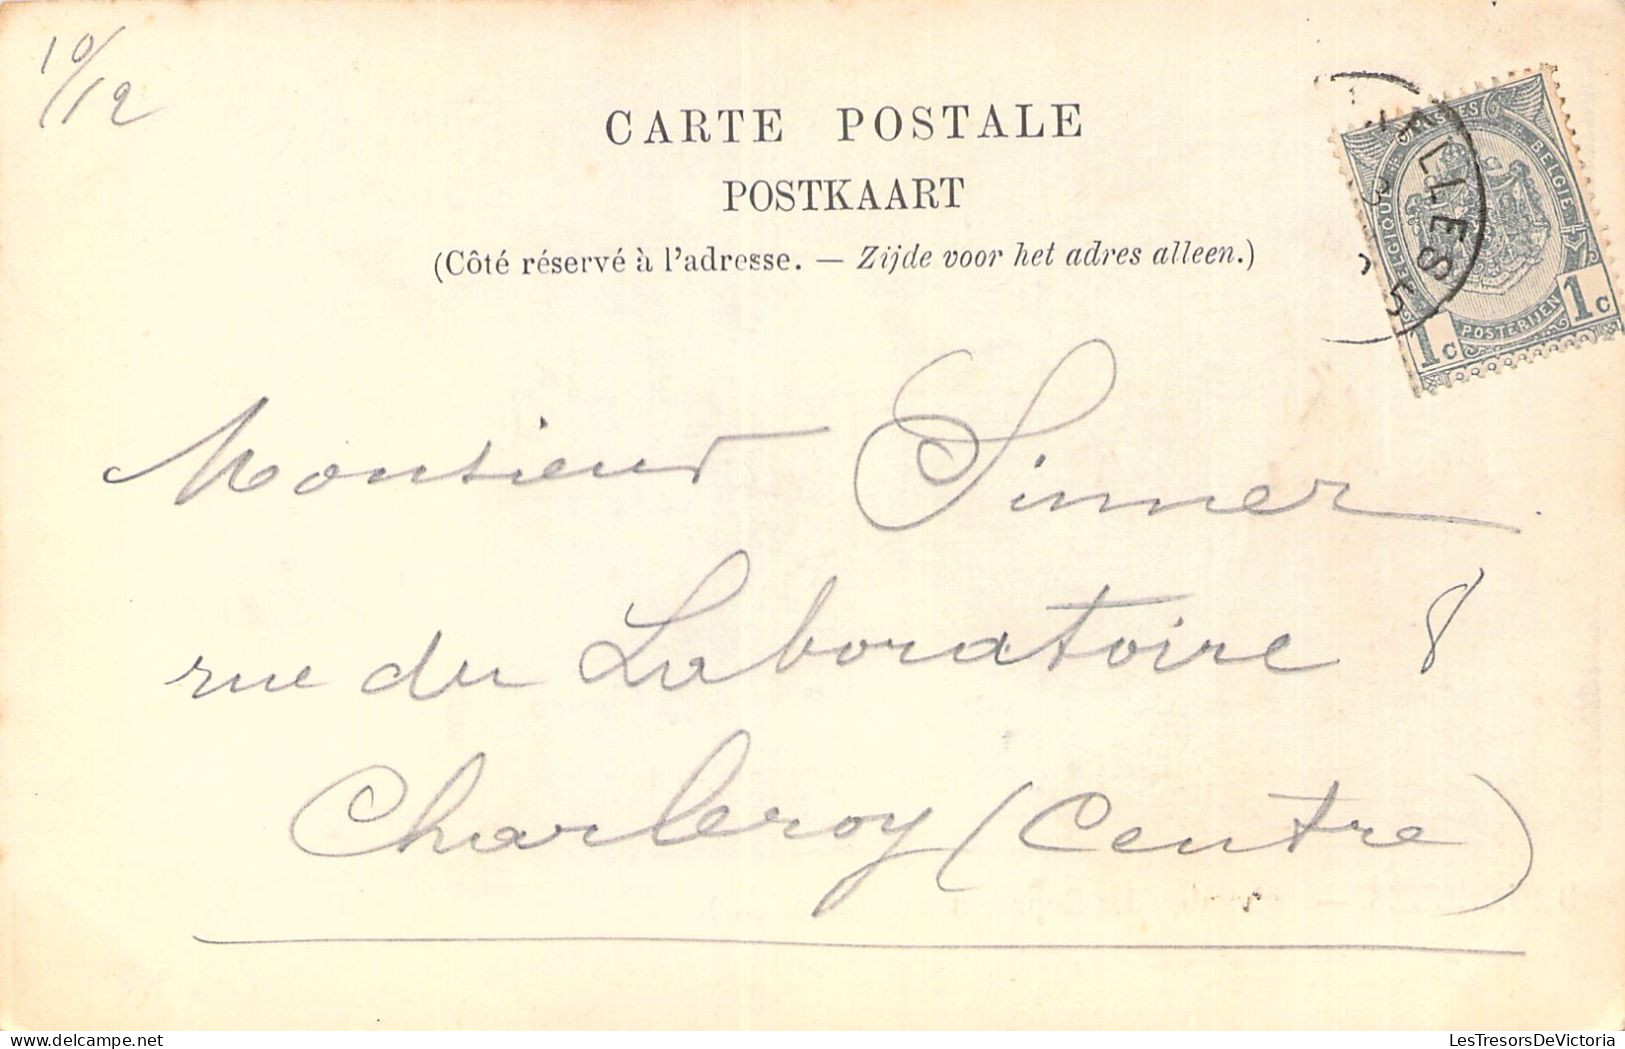 10/12
CARTE POSTALE
POSTKAART
(Côté réservé à l'adresse. — Zijde voor het adres alleen.)
BELGIQUE BELGIE
POSTERIJEN
1c 1c
ELLES
5
Monsieur Sinner
rue du Laboratoire 8
Charleroy (Centre)
LesTresorsDeVictoria